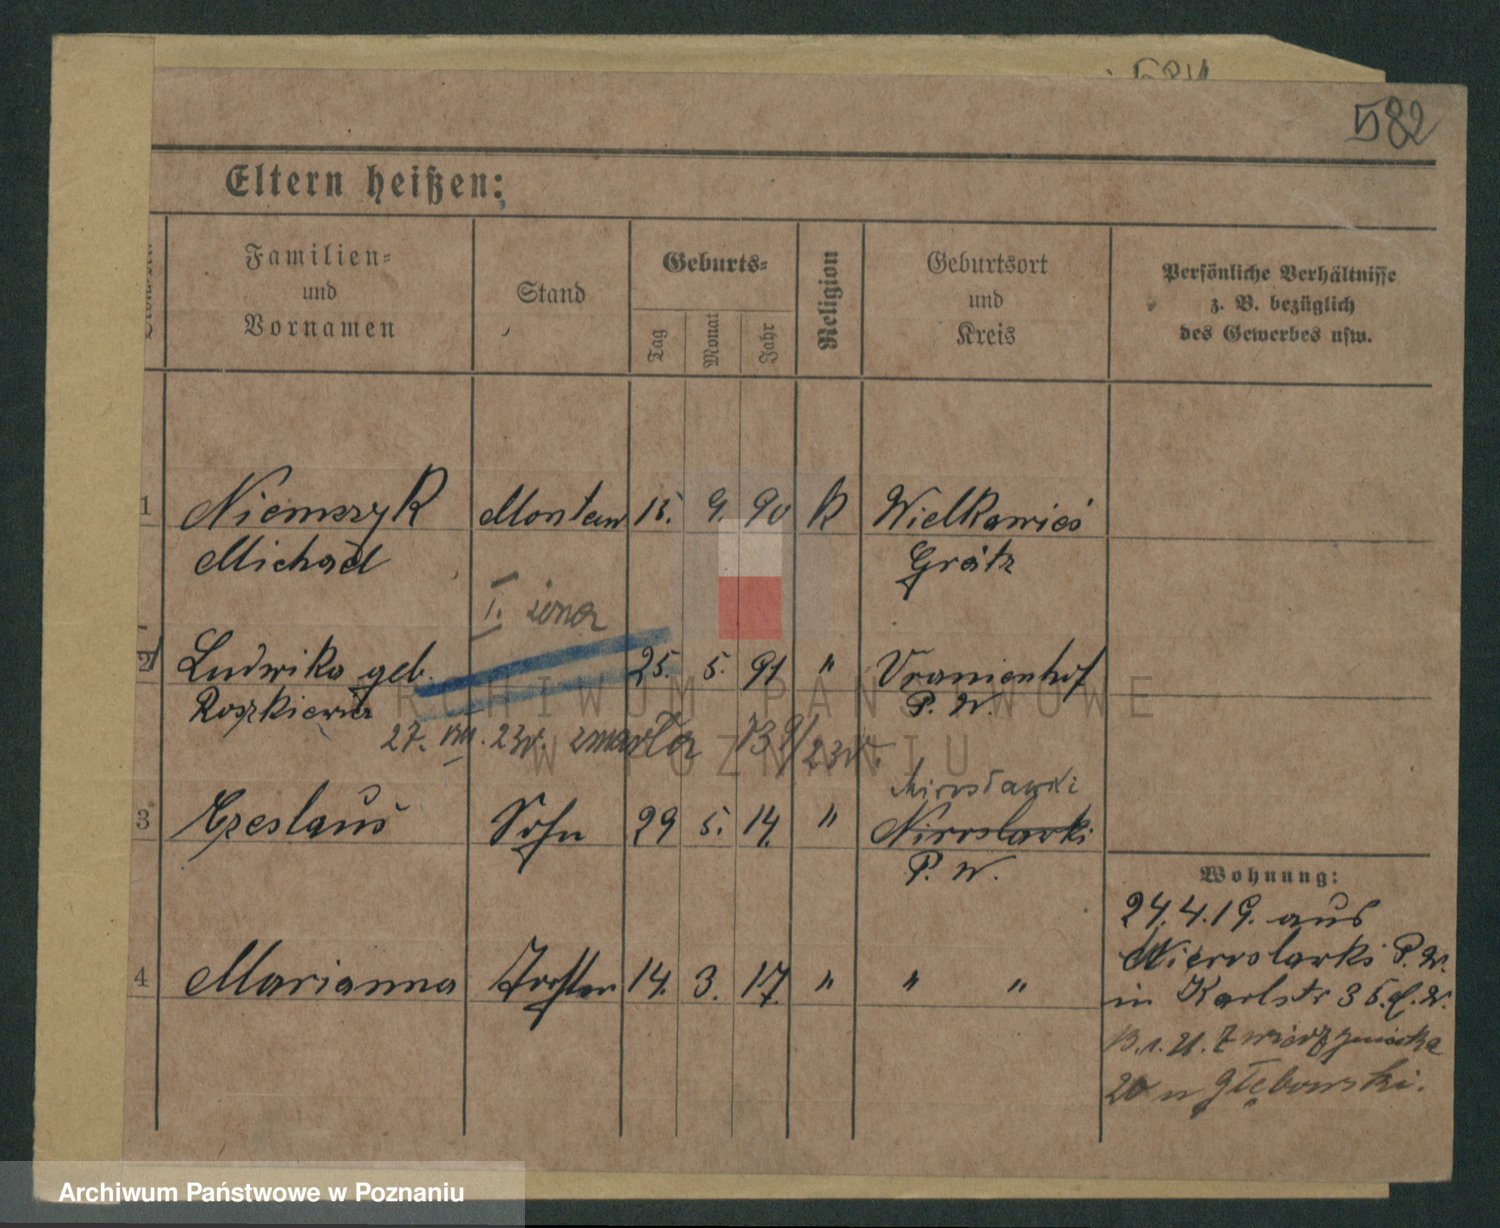 582
Eltern heißen:
Familien- und Vornamen
Stand
Geburts-
Tag
Monat
Jahr
Religion
Geburtsort und Kreis
Persönliche Verhältnisse z. B. bezüglich des Gewerbes usw.
1 Niemczyk Monteur 15. 9. 90 K Wielkawieś
Michael Grätz
I. żona
2 Ludwika geb. 25. 5. 91 " Uranienhof
Roszkiewicz P. W.
27. VIII. 23r. zmarła
Mirosławki
3 Czeslaus Sohn 29 5. 14. " Niroslawki
P. W.
Wohnung:
24.4.19. aus
P. W.
4 Marianna Tochter 14. 3. 17. " " "
in Karlstr 35.
20 u Głębowski.
ARCHIWUM PAŃSTWOWE
W POZNANIU
Archiwum Państwowe w Poznaniu